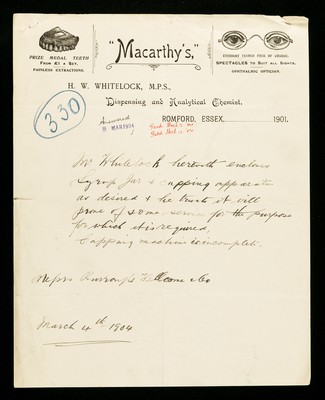 PRIZE MEDAL TEETH
FROM £1 A SET.
PAINLESS EXTRACTIONS.
"Macarthy's,"
SPECTACLES TO SUIT ALL SIGHTS.
OPHTHALMIC OPTICIAN.
H. W. WHITELOCK, M.P.S.,
Dispensing and Analytical Chemist.
330
Answered
8 MAR 1904
ROMFORD, ESSEX, 1901.
Mr Whitelock herewith encloses
Syrup Jar & cupping apparatus
as desired & he trusts it will
prove of some service for the purpose
for which it is required.
Cupping machine is incomplete.
Messrs Burroughs Wellcome & Co
March 4th 1904